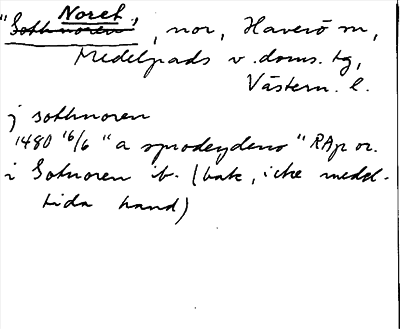 Noret,
"Sothnoren, nor, Haverö sn,
Medelpads v. doms. tg,
Västern. l.
j sothnoren
1480 16/6 "a sprodeydeno" RAp or.
i Sotnoren ib. (bak, icke medel-
tida hand)